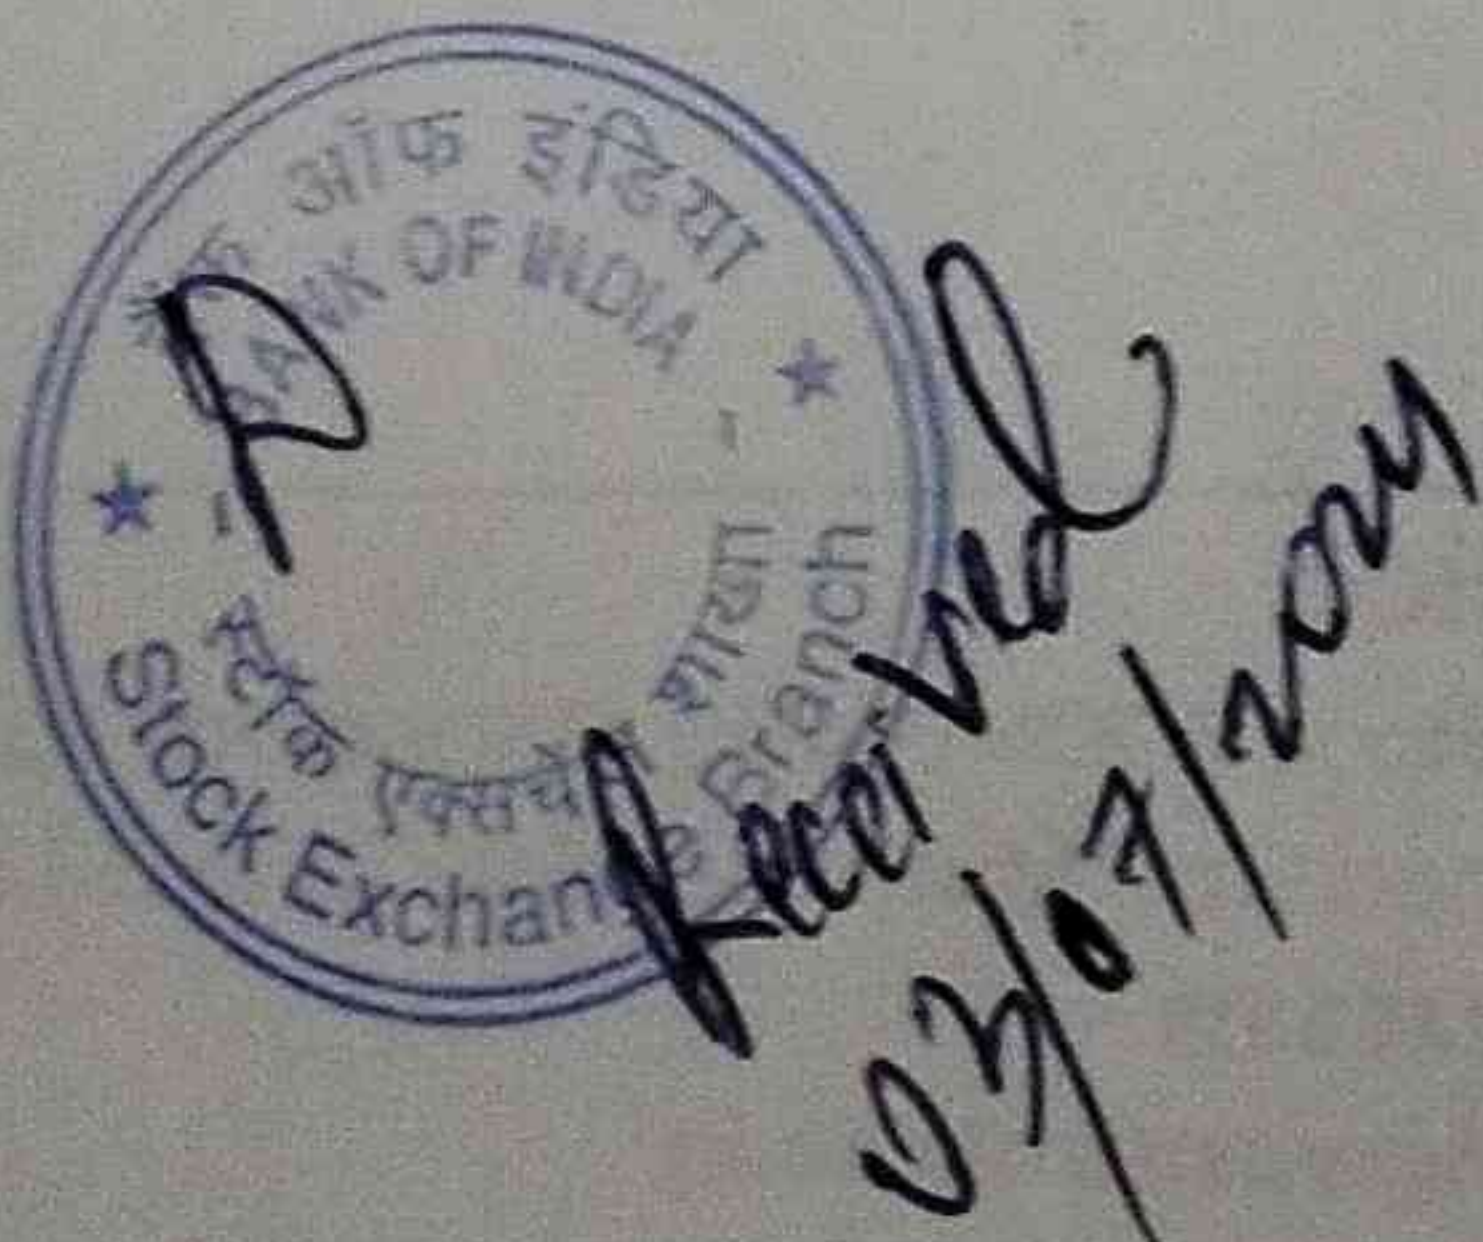 बैंक ऑफ इंडिया
BANK OF INDIA
स्टॉक एक्सचेंज शाखा
Stock Exchange Branch
Received
03/07/2024